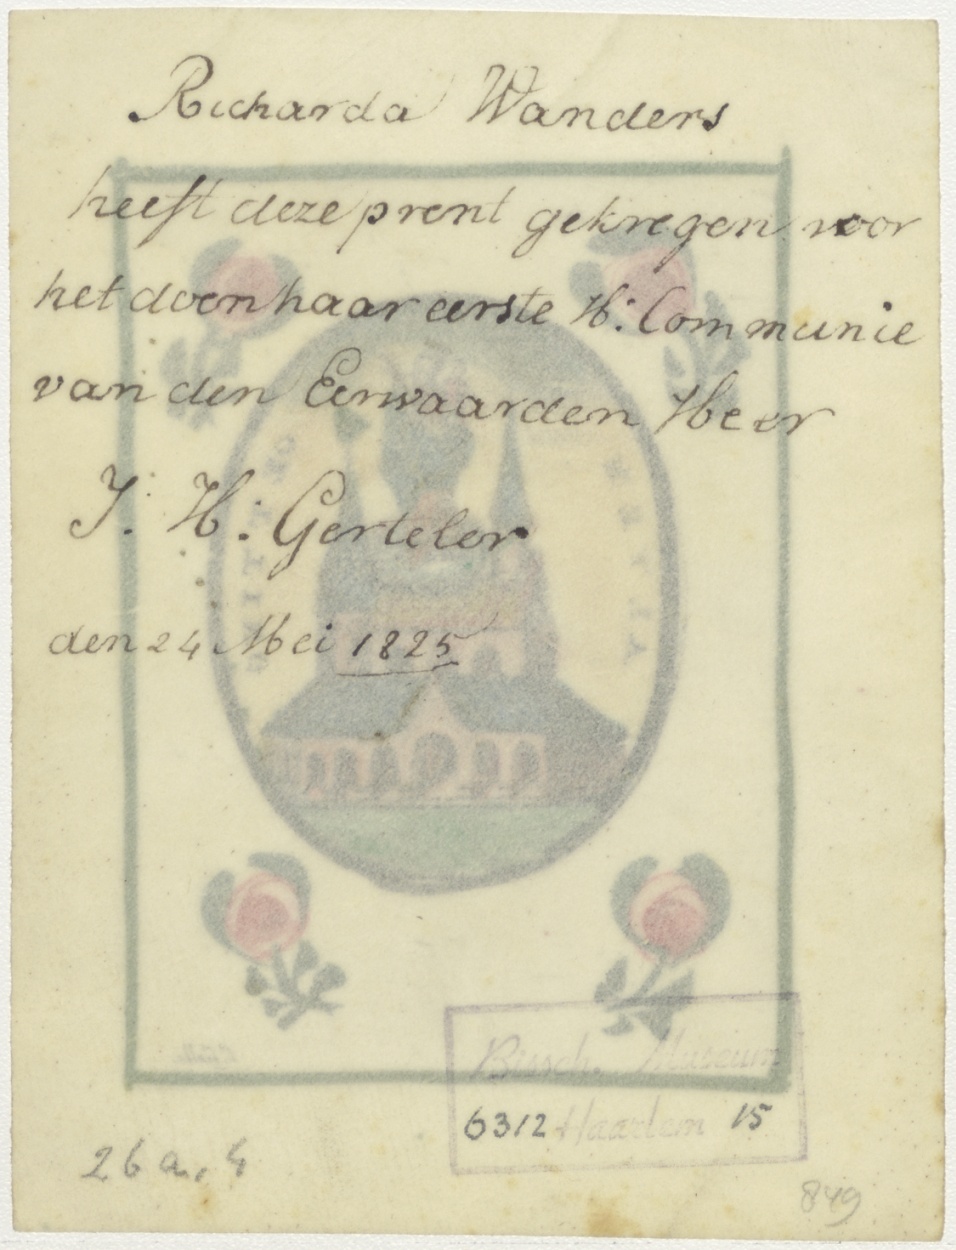 Richarda Wanders
heeft deze prent gekregen voor
het doen haar eerste H: Communie
van den Eerwaarden Heer
J. H: Gerteler
den 24 Mei 1825
Bissch. Museum
6312 Haarlem 15
26 a, 4
849